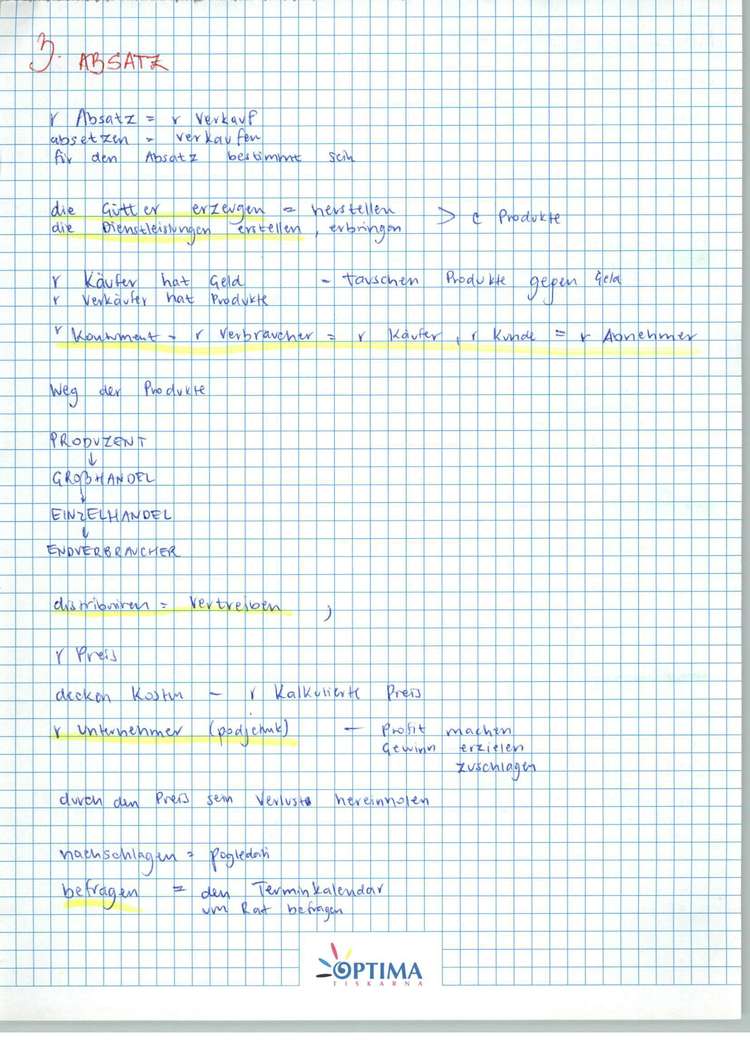 3. ABSATZ
r Absatz = r Verkauf
absetzen = verkaufen
für den Absatz bestimmt sein
die Gütter erzeugen = herstellen > e Produkte
die Dienstleistungen erstellen, erbringen
r Käufer hat Geld - tauschen Produkte gegen Geld
r Verkäufer hat Produkte
r Konsument = r Verbraucher = r Käufer, r Kunde = r Abnehmer
Weg der Produkte
PRODUZENT
↓
GROßHANDEL
↓
EINZELHANDEL
↓
ENDVERBRAUCHER
distribuiren = vertreiben ,
r Preis
decken Kosten - r Kalkulierte Preis
r Unternehmer (podjetnik) - Profit machen
Gewinn erzielen
zuschlagen
durch den Preis sein Verluste hereinholen
nachschlagen = pogledati
befragen = den Terminkalendar
um Rat befragen
OPTIMA
TISKARNA